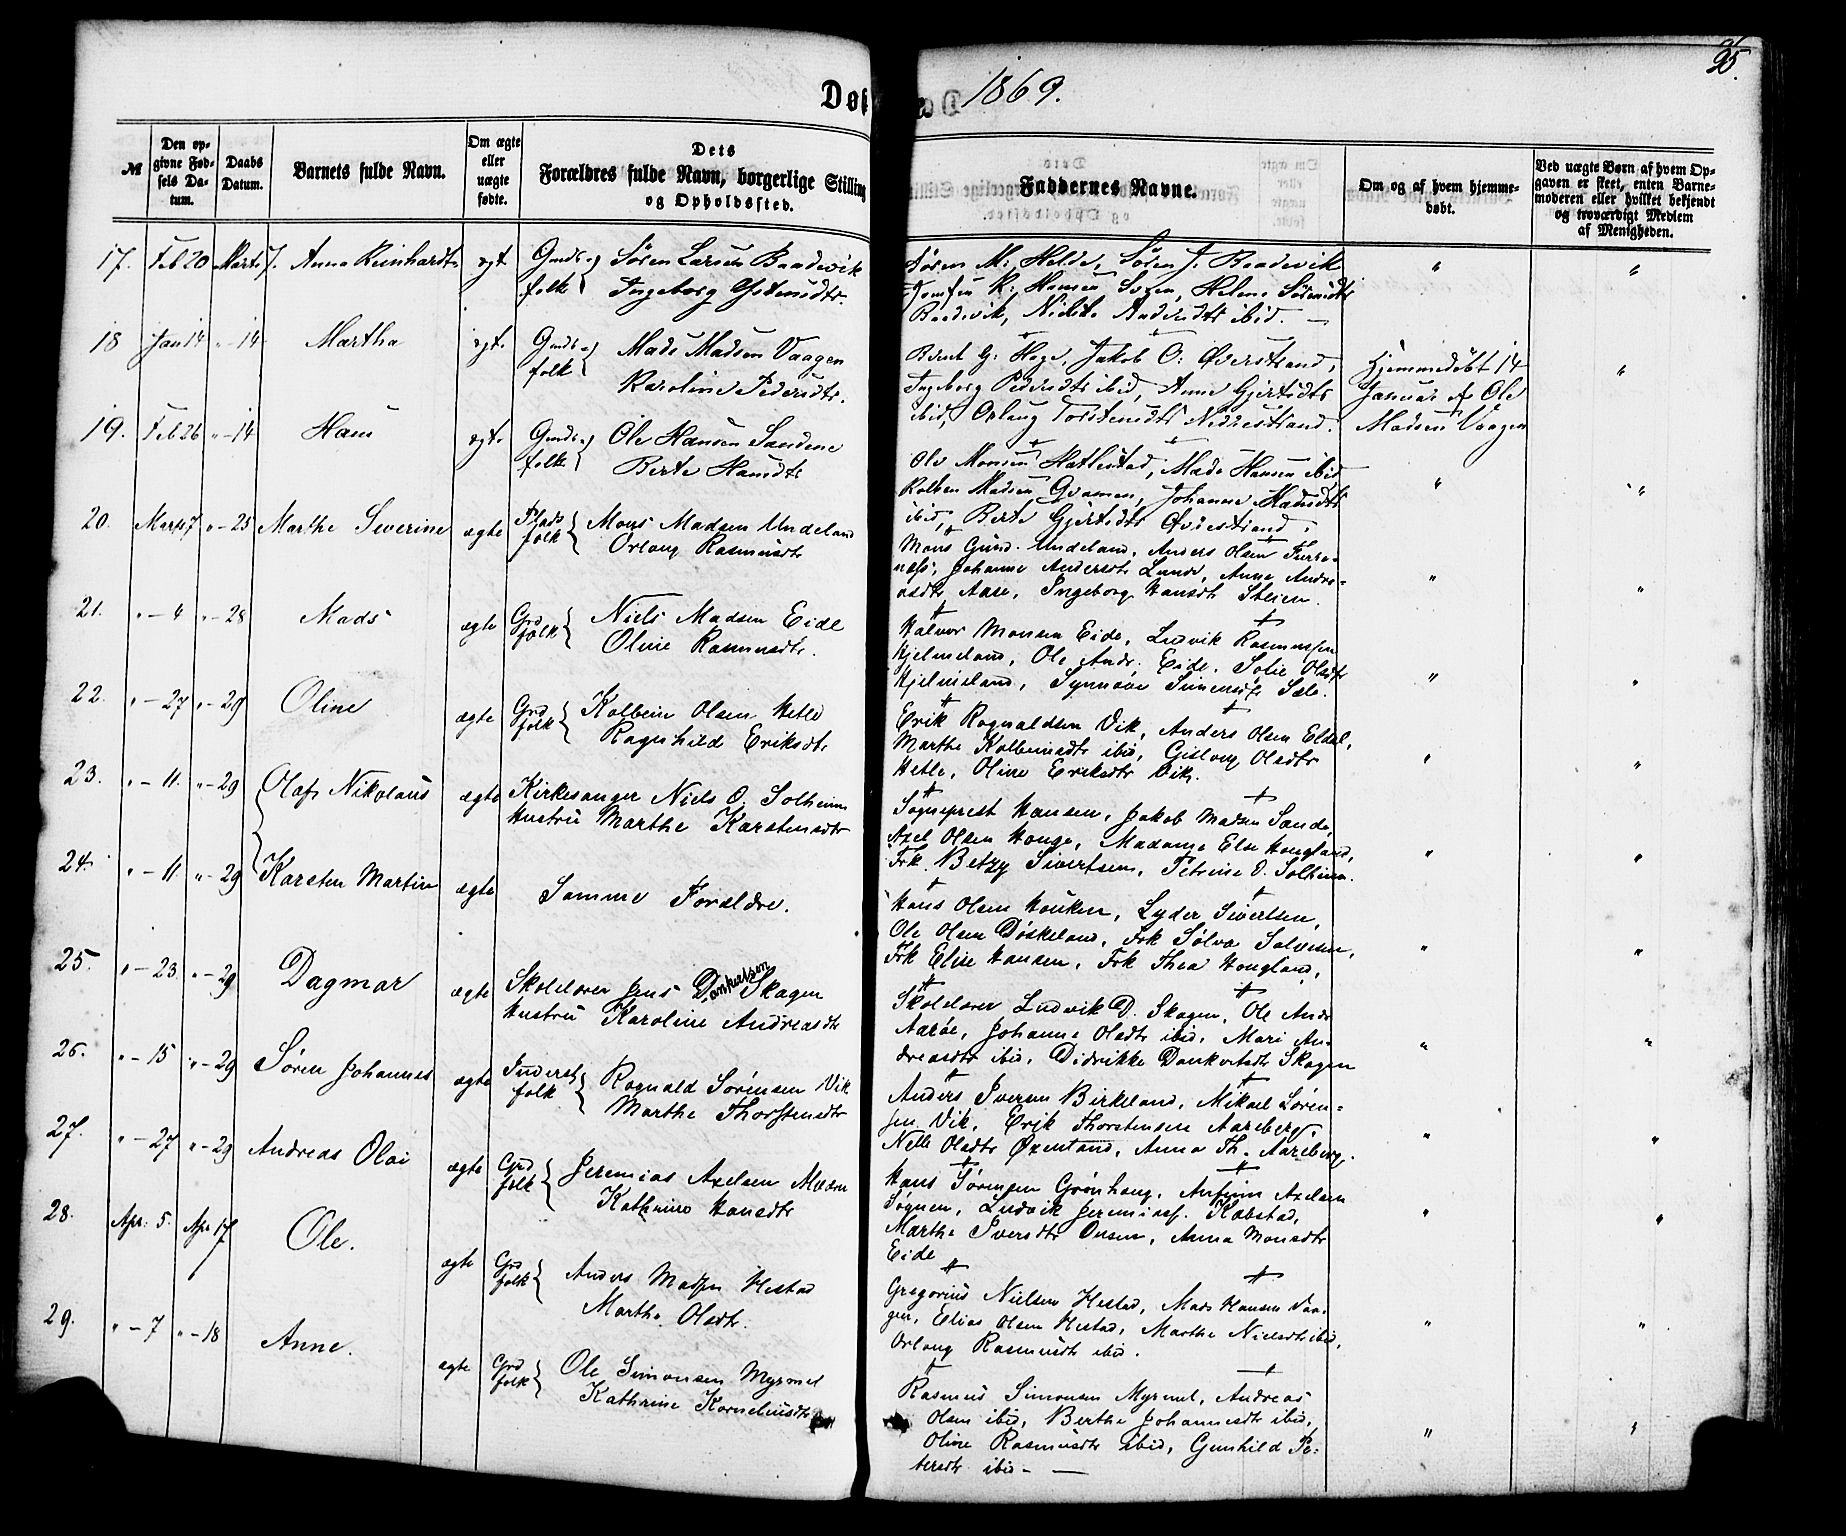 95.
Døb
1869.
№
Den opgivne Fødsels Datum.
Daabs Datum.
Barnets fulde Navn.
Om ægte eller uægte fødte.
Dets Forældres fulde Navn, borgerlige Stilling og Opholdssted.
Faddernes Navne.
Om og af hvem hjemmedøbt.
Ved uægte Børn af hvem Opgaven er skeet, enten Barnemoderen eller hvilket bekjendt og troværdigt Medlem af Menigheden.
17. Feb 20 Marts 7. Anna Reinhardt egt Gmds folk Søren Larsen Baadevik
Ingeborg
Søren J. Baadevik
Hansen Helene Sørensdtr
Baadevik, ibid. —
18 Jan 14 " - 14 Martha egt. Gmds folk Mads Madsen Vaagen
Karoline Pedersdtr.
Bernt G: Jakob O: Øvrestrand,
Ingeborg Pedersdtr ibid, Anne Gjertsdtr
ibid, Orlaug Torstensdtr Nedrestrand.
Hjemmedøbt 14
Januar af Ole
Madsen Vaagen
19. Feb 26 " - 14 Hans egt. Gmds folk Ole Hansen Sandene
Berte Hansdtr
Ole Monsen Hatlestad, Mads Hansen ibid
Kolben Madsen Johanne Hansdtr
ibid, Berte Gjertsdtr Øvrestrand.
20. Marts 7 " - 25 Marthe Severine ægte Plads folk Mons Madsen Undeland
Orlaug Rasmusdtr
Mons Gund. Undeland, Anders Olsen Furre-
næs, Johanne Andersdtr Lunde, Anne Andre-
asdtr Aase, Ingeborg Hansdtr Steien.
21. " - 4 " - 28 Mads ægte Grd folk Niels Madsen Eide
Oline Rasmusdtr.
Halvor Monsen Eide, Ludvik Rasmussen
Hjelmeland, Ole Andr. Eide, Sofie Olsdtr
Hjelmeland, Synnøve Simensdtr Sæle.
22. " - 27 " - 29 Oline ægte Grd folk Kolbein Olsen Hetle
Ragnhild Eriksdtr
Erik Rognaldsen Vik, Anders Olsen Eldal,
Marthe Kolbeinsdtr ibid, Gislaug Olsdtr
Hetle, Oline Eriksdtr Vik.
23. " - 11. " - 29 Olaf Nikolaus ægte Kirkesanger Niels O. Solheim
Hustru Marthe Karstensdtr
Sogneprest Hansen, Jakob Madsen Sande,
Axel Olsen Houge, Madame Else Hougland,
Frk. Betzy Sivertsen, Petrine O. Solheim.
24. " - 11 " - 29 Karsten Martin ægte Samme Forældre.
Hans Olsen Houken, Lyder Sivertsen,
Ole Olsen Døskeland, Frk Sølva Salvesen,
Frk Elise Hansen, Frk Thea Hougland,
25. " - 23. " - 29 Dagmar ægte Skolelærer Jens Dankertsen Skagen
Hustru Karoline Andreasdtr
Skolelærer Ludvik D. Skagen, Ole Andr
Aarøe, Johanne Olsdtr ibid, Mari An-
dreasdtr ibid, Didrikke Dankertsdtr Skagen
26. " - 15 " - 29 Søren Johannes ægte Inderst folk Rognald Sørensen Vik
Marthe Thorstensdtr
Anders Iversen Birkeland, Mikael Søren-
sen Vik, Erik Thorstensen Aareberg,
Nelle Olsdtr Øxenland, Anna Th. Aareberg.
27. " - 27 " - 29 Andreas Olai ægte Grd folk Jeremias Axelsen
Kathrine Hansdtr
Hans Sørensen Grønhaug, Axelsen
Søgnen, Ludvik Jeremiass.
Marthe Iversdtr Anna Monsdtr
Eide
28. Apr: 5. Apr 17 Ole. ægte Grd folk Anders Madsen Hestad
Marthe Olsdtr.
Gregorius Nielsen Hestad, Mads Hansen Vaa-
gen, Elias Olsen Hestad, Marthe Nielsdtr ibid,
Orlaug Rasmusdtr ibid.
29. " - 7 " - 18 Anne. ægte Grd folk Ole Simonsen Myrmel
Kathrine Korneliusdtr
Rasmus Simonsen Myrmel, Andreas
Olsen ibid, Berthe Johannesdtr ibid,
Oline Rasmusdtr ibid, Gunhild Pe-
tersdtr ibid - —